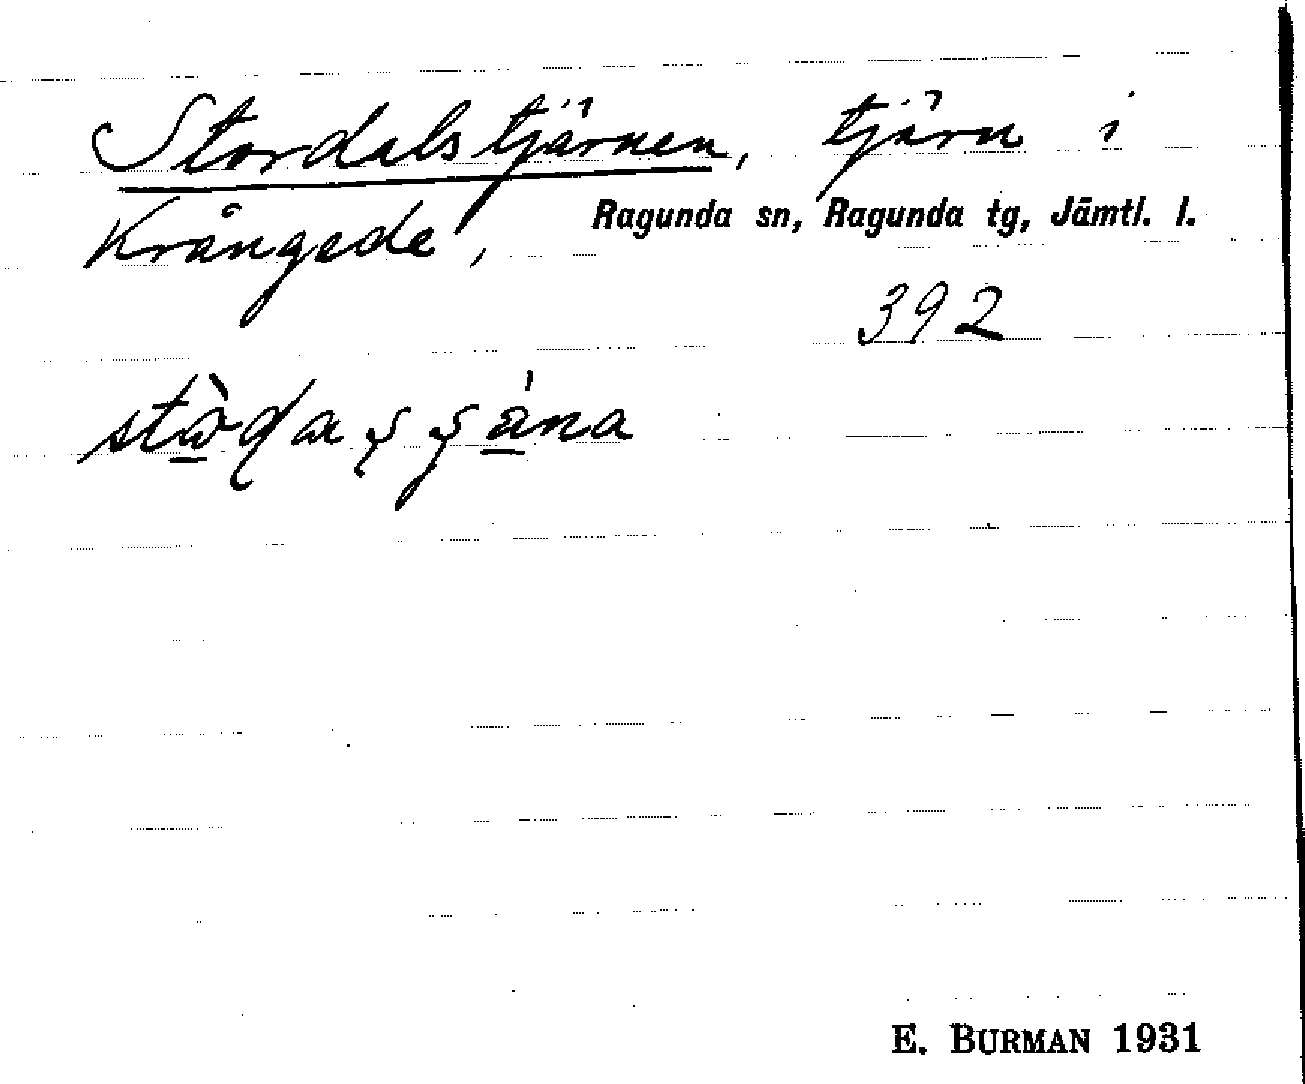 Stordalstjärnen, tjärn i
Krångede, Ragunda sn, Ragunda tg, Jämtl. l.
392
E. BURMAN 1931